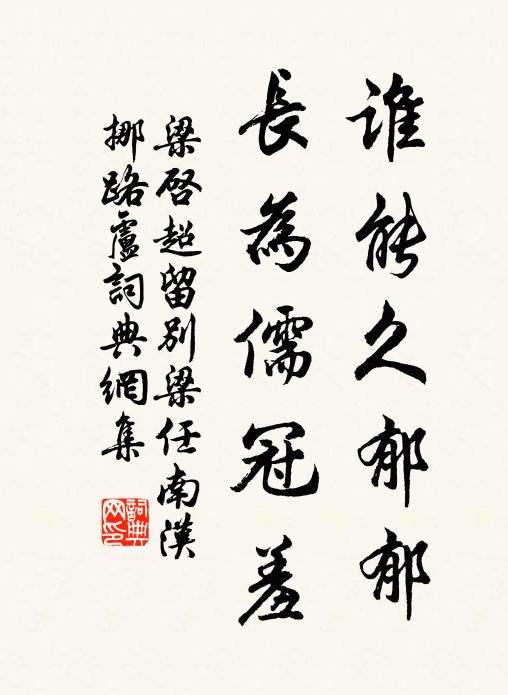 谁能久郁郁
長為儒冠羞
梁啓超留别梁任南漢
挪路盧詞典網集
詞典网印